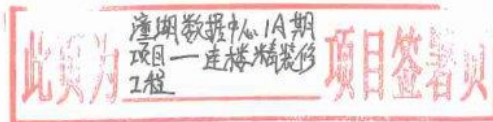 此页为
潼湖数据中心1A期
项目一连楼精装修
工程
项目签署页